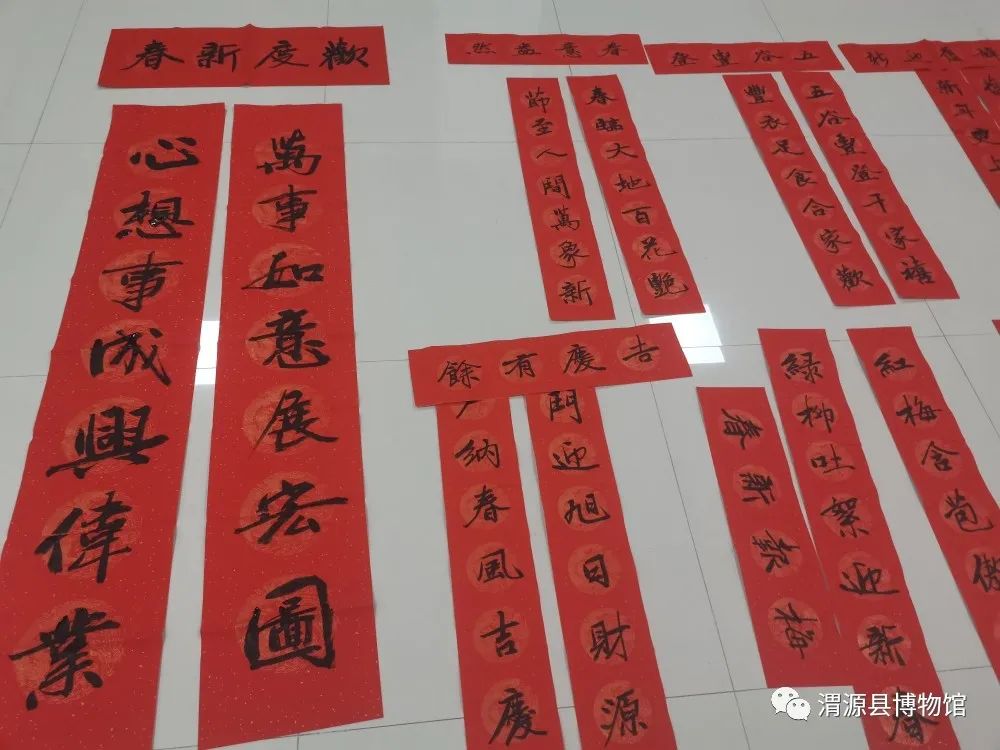 歡度新春
萬事如意展宏圖
心想事成興偉業
春意盎然
春臨大地百花艷
節至人間萬象新
五谷豐登
五谷豐登千家禧
豐衣足食合家歡
迎新
新年更上
吉慶有餘
門迎旭日財源
户納春風吉慶
紅梅含苞傲
綠柳吐絮迎新春
梅報新春
渭源县博物馆